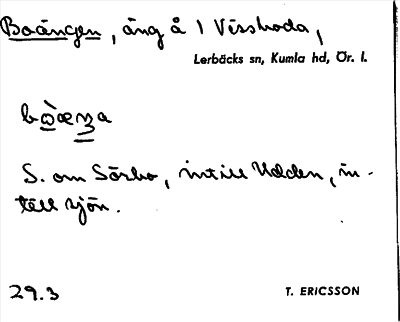 Boängen, äng å 1 Vissboda,
Lerbäcks sn, Kumla hd, Ör. l.
S. om Sörbo, intill Udden, in-
till sjön.
29.3 T. ERICSSON